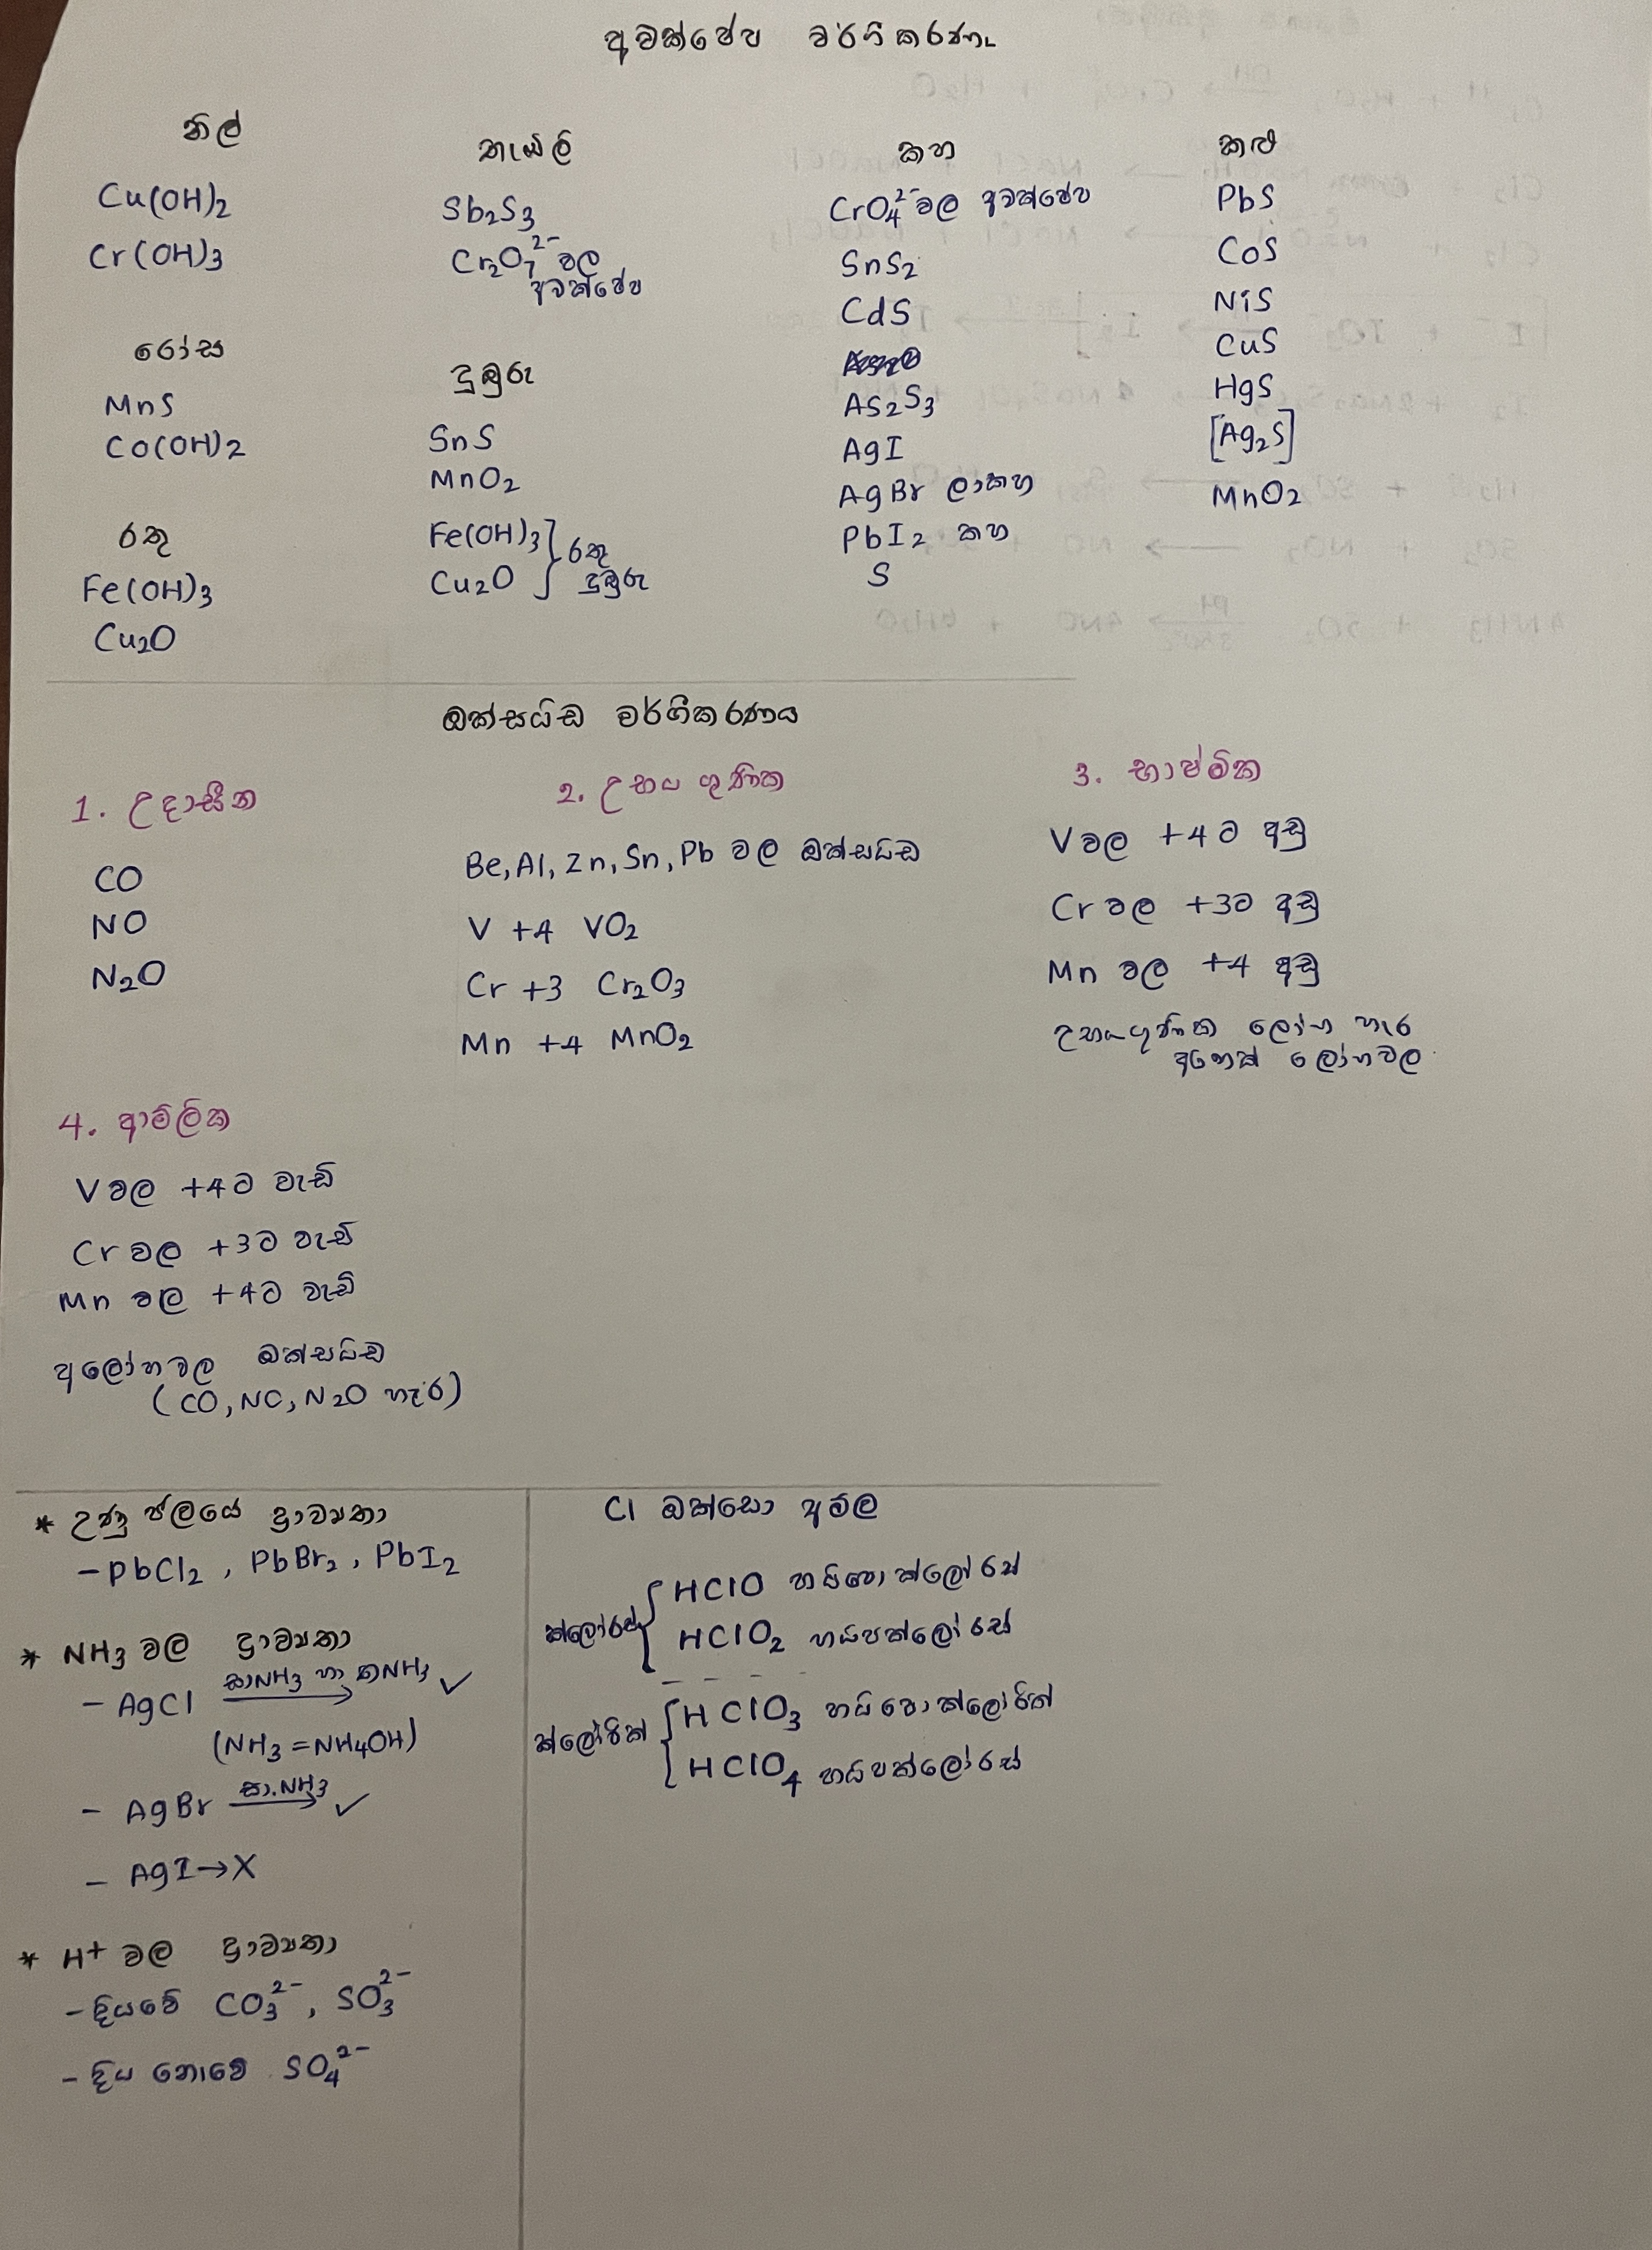 අවක්ෂේප වර්ගීකරණය
නිල්
Cu(OH)2
Cr(OH)3
රෝස
MnS
Co(OH)2
රතු
Fe(OH)3
Cu2O
තැඹිලි
Sb2S3
Cr2O7 2- වල
අවක්ෂේප
දුඹුරු
SnS
MnO2
Fe(OH)3 } රතු
Cu2O } දුඹුරු
කහ
CrO4 2- වල අවක්ෂේප
SnS2
CdS
As2S3
AgI
AgBr ලාකහ
PbI2 කහ
S
කළු
PbS
CoS
NiS
CuS
HgS
[Ag2S]
MnO2
ඔක්සයිඩ වර්ගීකරණය
1. උදාසීන
CO
NO
N2O
2. උභය ගුණික
Be, Al, Zn, Sn, Pb වල ඔක්සයිඩ
V +4 VO2
Cr +3 Cr2O3
Mn +4 MnO2
3. භාෂ්මික
V වල +4 ට අඩු
Cr වල +3ට අඩු
Mn වල +4 අඩු
උභයගුණික ලෝහ හැර
අනෙක් ලෝහවල
4. ආම්ලික
V වල +4ට වැඩි
Cr වල +3ට වැඩි
Mn වල +4ට වැඩි
අලෝහවල ඔක්සයිඩ
(CO, NO, N2O හැර)
* උණු ජලයේ ද්‍රාව්‍යතා
- PbCl2 , PbBr2 , PbI2
* NH3 වල ද්‍රාව්‍යතා
- AgCl සාNH3 හා තNH3 → ✓
(NH3 = NH4OH)
- AgBr සා.NH3 → ✓
- AgI → X
* H+ වල ද්‍රාව්‍යතා
- දියවේ CO3 2-, SO3 2-
- දිය නොවේ SO4 2-
Cl ඔක්සො අම්ල
ක්ලෝරස් { HClO හයිපොක්ලෝරස්
HClO2 හයිපක්ලෝරස්
ක්ලෝරික් { HClO3 හයිපොක්ලෝරික්
HClO4 හයිපක්ලෝරස්